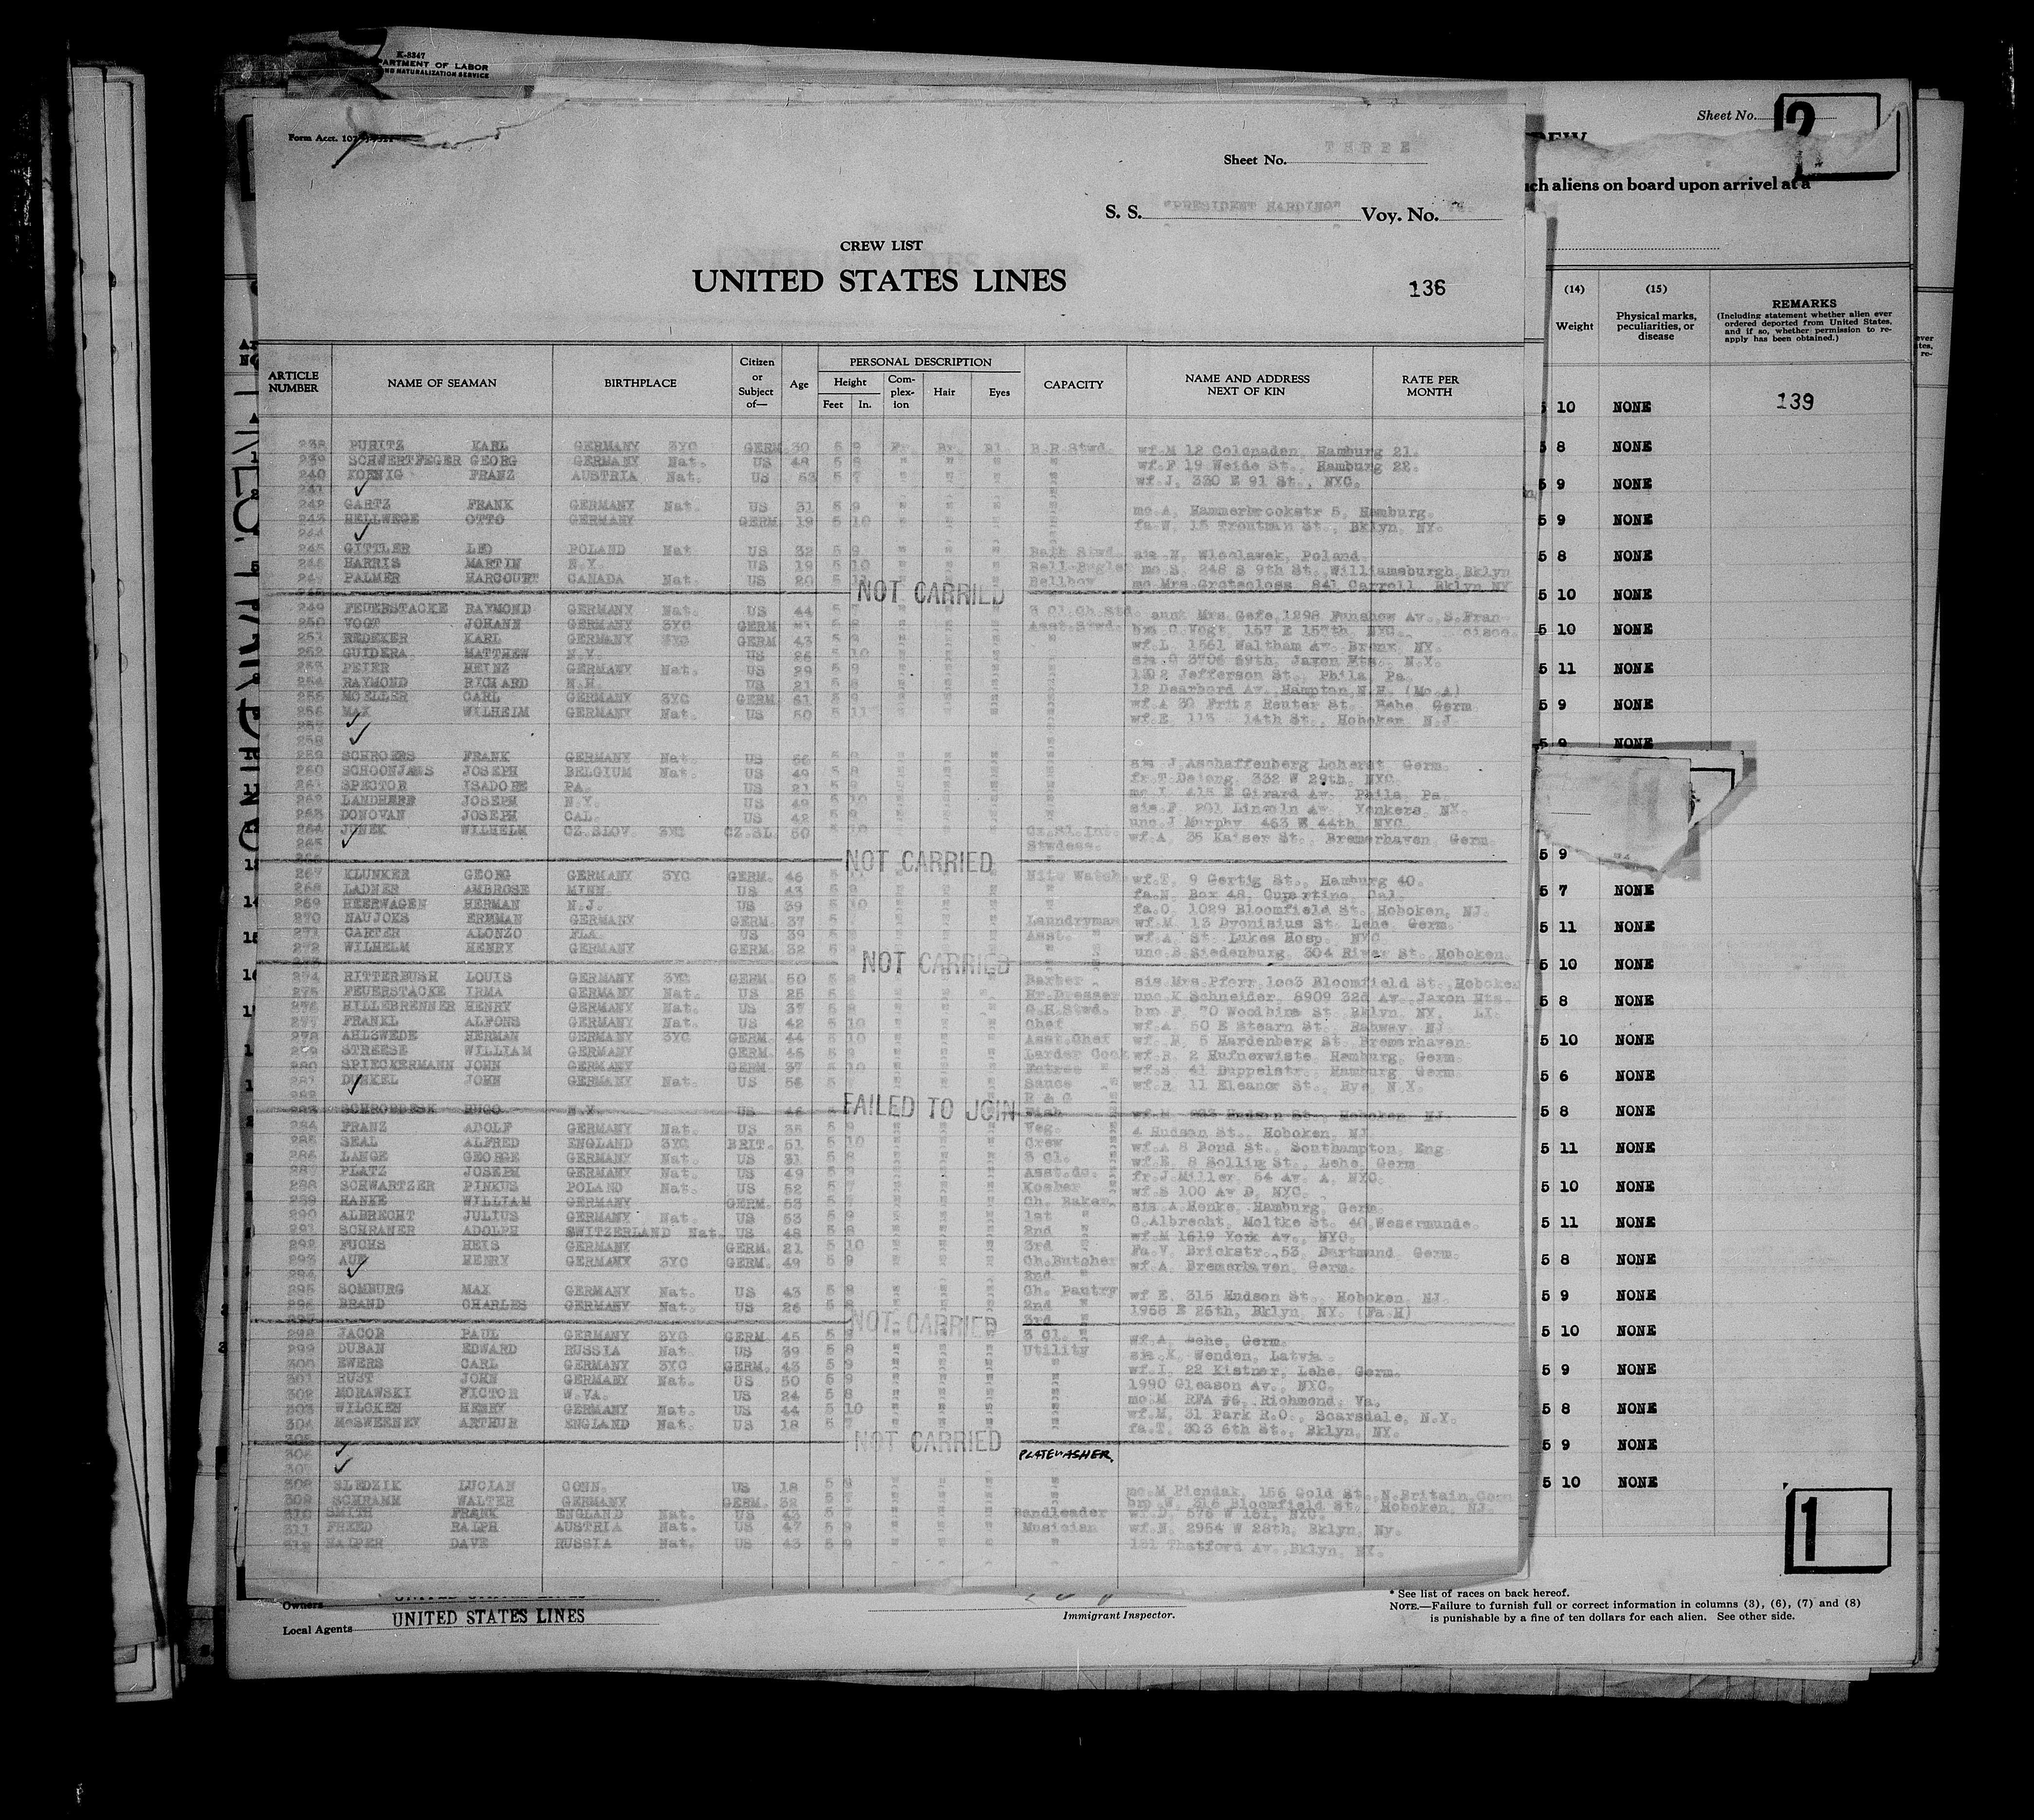 K-8347
DEPARTMENT OF LABOR
AND NATURALIZATION SERVICE
Form Acct. 107
Sheet No. THREE
S. S. "PRESIDENT HARDING" Voy. No.
CREW LIST
UNITED STATES LINES
136
ARTICLE NUMBER NAME OF SEAMAN BIRTHPLACE Citizen or Subject of— Age PERSONAL DESCRIPTION Height Feet In. Complexion Hair Eyes CAPACITY NAME AND ADDRESS NEXT OF KIN RATE PER MONTH
238 PURITZ KARL GERMANY 3YC GERM 30 5 9 Fr. Br. Bl. B.R.Stwd. wf.M 12 Colonaden, Hamburg 21.
239 SCHWERTFEGER GEORG GERMANY Nat. US 48 5 8 " " " " wf.F 19 Weide St., Hamburg 22.
240 KOENIG FRANZ AUSTRIA Nat. US 53 5 7 " " " " wf J, 330 E 91 St., NYC.
241 ✓
242 GARTZ FRANK GERMANY Nat. US 31 5 9 " " " " mo.A, Hammerbrookstr 5, Hamburg.
243 HELLWEGE OTTO GERMANY GERM 19 5 10 " " " " fa.W, 15 Troutman St., Bklyn, NY.
244 ✓
245 GITTLER LEO POLAND Nat US 32 5 9 " " " Bath Stwd. sis N, Wloclawek, Poland
246 HARRIS MARTIN N.Y. US 19 5 10 " " " Bell Bugler mo S, 248 S 9th St, Williamsburgh, Bklyn
247 PALMER HARCOURT CANADA Nat. US 20 5 " " " Bellboy mo Mrs Grotesloss, 841 Carroll Bklyn NY
NOT CARRIED
249 FEUERSTACKE RAYMOND GERMANY Nat. US 44 5 7 " " " 3 Cl.Ch.Std. aunt Mrs Gefe, 1298 Funshow Av. S.Francisco.
250 VOGT JOHANN GERMANY 3YC GERM 5 8 " " " Asst.Stwd. bro C Vogt, 157 E 157th, NYC.
251 REDEKER KARL GERMANY 3YC GERM 43 5 9 " " " " wf.L 1561 Waltham Av. Bronx, NY.
252 GUIDERA MATTHEW N.Y. US 26 5 10 " " " " sis.C 3706 69th, Jaxon Hts., N.Y.
253 PEIER HEINZ GERMANY Nat. US 29 5 9 " " " " 1302 Jefferson St., Phila, Pa.
254 RAYMOND RICHARD N.H. US 21 5 8 " " " " 12 Dearbord Av. Hampton,N.H. (Mo.A)
255 MOELLER CARL GERMANY 3YC GERM 61 5 8 " " " " wf.A 30 Fritz Reuter St. Lehe Germ
256 MAX WILHELM GERMANY Nat. US 50 5 11 " " " " wf.E, 113 14th St., Hoboken, N.J.
257 ✓
258 ✓
259 SCHROERS FRANK GERMANY Nat. US 56 5 9 " " " " sis J, Aschaffenberg Loherst, Germ.
260 SCHOONJANS JOSEPH BELGIUM Nat. US 49 5 8 " " " " fr.T Dejong, 332 W 29th, NYC.
261 SPECTOR ISADORE PA. US 21 5 9 " " " " mo.I. 415 E Girard Av. Phila, Pa.
262 LANDHERR JOSEPH N.Y. US 49 5 10 " " " " sis.F. 201 Lincoln Av. Yonkers, NY.
263 DONOVAN JOSEPH CAL. US 42 5 8 " " " " unc.J Murphy, 463 W 44th, NYC.
264 JUNEK WILHELM CZ.SLOV. 3YC CZ.SL. 50 5 10 " " " Cz.Sl.Int. wf.A, 35 Kaiser St., Bremerhaven, Germ.
265 ✓ Stwdess.
NOT CARRIED
267 KLUNKER GEORG GERMANY 3YC GERM. 46 5 " " " Nite Watch wf.T, 9 Gertig St., Hamburg 40.
268 LADNER AMBROSE MINN. US 43 5 9 " " " " fa.N, Box 48, Cupertino, Cal.
269 HEERWAGEN HERMAN N.J. US 39 5 10 " " " " fa.O, 1029 Bloomfield St. Hoboken, NJ.
270 NAUJOKS ERDMAN GERMANY GERM. 37 5 " " " Laundryman wf.M. 13 Dyonisius St. Lehe, Germ.
271 CARTER ALONZO FLA. US 39 5 8 " " " Asst. " wf.A, St. Lukes Hosp. NYC
272 WILHELM HENRY GERMANY GERM. 32 5 8 " " " " unc.B Siedenburg, 304 River St. Hoboken.
NOT CARRIED
274 RITTERBUSH LOUIS GERMANY 3YC GERM. 50 5 8 " " " Barber sis Mrs Pforr, 1003 Bloomfield St. Hoboken
275 FEUERSTACKE IRMA GERMANY Nat. US 25 5 " " " Hr.Dresser unc.K Schneider, 8909 32d Av. Jaxon Hts. LI.
276 HILLEBRENNER HENRY GERMANY Nat. US 37 5 8 " " " C.H.Stwd. bro F, 70 Woodbine St. Bklyn, NY.
277 FRANKL ALFONS GERMANY Nat. US 42 5 10 " " " Chef wf.A, 50 E Stearn St. Rahway, NJ
278 AHLSWEDE HERMAN GERMANY 3YC GERM. 44 5 10 " " " Asst.Chef wf. R, 5 Hardenberg St. Bremerhaven
279 STREESE WILLIAM GERMANY GERM. 46 5 9 " " " Larder Cook wf.R. 2 Hufnerwiste, Hamburg, Germ.
280 SPIECKERMANN JOHN GERMANY GERM. 37 5 10 " " " Entree " wf.S 41 Duppelstr., Hamburg Germ.
281 DUNKEL JOHN GERMANY Nat. US 56 5 " " " Sauce " wf.R 11 Eleanor St., Rye, N.Y.
282 ✓ R & G
283 SCHROEDESK HUGO N.Y. US 46 Fish wf.M 933 Hudson St. Hoboken NJ
FAILED TO JOIN
284 FRANZ ADOLF GERMANY Nat. US 35 5 9 " " " Veg. 4 Hudson St., Hoboken, NJ.
285 SEAL ALFRED ENGLAND 3YC BRIT. 51 5 10 " " " Crew wf.A 8 Bond St., Southampton, Eng
286 LANGE GEORGE GERMANY Nat. US 31 5 8 " " " 3 Cl. wf.E. 8 Solling St., Lehe, Germ.
287 PLATZ JOSEPH GERMANY Nat. US 49 5 9 " " " Asst.do. fr.J.Miller, 54 Av. A, NYC.
288 SCHWARTZER PINKUS POLAND Nat. US 52 5 7 " " " Kosher " wf.S 100 Av D, NYC.
289 HANKE WILLIAM GERMANY GERM. 53 5 " " " Ch. Baker, sis A Henke, Hamburg, Germ.
290 ALBRECHT JULIUS GERMANY Nat. US 53 5 9 " " " 1st " C.Albrecht, Moltke St. 40,Wesermunde.
291 SCHRANER ADOLPH SWITZERLAND Nat. US 48 5 8 " " " 2nd wf.M 1619 York Av., NYC.
292 FUCHS HEIS GERMANY GERM. 21 5 10 " " " 3rd Fa.V. Brickstr.,53, Dortmund Germ.
293 AUE HENRY GERMANY 3YC GERM. 49 5 9 " " " Ch.Butcher wf.A, Bremerhaven, Germ.
294 ✓ 2nd "
295 SOMBURG MAX GERMANY Nat. US 43 5 8 " " " Ch. Pantry wf E. 315 Hudson St., Hoboken, NJ
296 BRAND CHARLES GERMANY Nat. US 26 5 8 " " " 2nd " 1958 E 26th, Bklyn, NY. (Fa.H)
NOT CARRIED 3rd
298 JACOB PAUL GERMANY 3YC GERM. 45 5 9 " " " 3 Cl. " wf.A, Lehe, Germ.
299 DUBAN EDWARD RUSSIA Nat. US 39 5 8 " " " Utility sis.K. Wenden, Latvia
300 EWERS CARL GERMANY 3YC GERM. 43 5 9 " " " " wf.I, 22 Kistner, Lehe, Germ.
301 RUST JOHN GERMANY Nat. US 50 5 9 " " " " 1990 Gleason Av., NYC.
302 MORAWSKI VICTOR W.VA. US 24 5 8 " " " " mo.M RFA #6, Richmond, Va.
303 WILCKEN HENRY GERMANY Nat. US 44 5 10 " " " " wf.M, 31 Park R.O., Scarsdale, N.Y.
304 McSWEENEY ARTHUR ENGLAND Nat. US 18 5 7 " " " " fa.T. 303 6th St., Bklyn, NY.
305 NOT CARRIED
306 ✓ PLATEWASHER,
307 ✓
308 SLEDZIK LUCIAN CONN. US 18 5 8 " " " " mo.M Piendak, 166 Gold St., N.Britain,Conn
309 SCHRAMM WALTER GERMANY GERM. 32 5 " " " " bro.W, 316 Bloomfield St., Hoboken, NJ.
310 SMITH FRANK ENGLAND Nat. US 43 5 7 " " " Bandleader wf.D, 575 W 161, NYC.
311 FREED RALPH AUSTRIA Nat. US 47 5 9 " " " Musician wf.N, 2954 W 28th, Bklyn, Ny.
312 HALPER DAVE RUSSIA Nat. US 43 5 9 " " " " 151 Thatford Av. Bklyn, NY.
Owners
Local Agents UNITED STATES LINES
Immigrant Inspector.
* See list of races on back hereof.
NOTE.—Failure to furnish full or correct information in columns (3), (6), (7) and (8)
is punishable by a fine of ten dollars for each alien. See other side.
Sheet No. 2
such aliens on board upon arrival at a
(14) Weight (15) Physical marks, peculiarities, or disease
REMARKS
(Including statement whether alien ever
ordered deported from United States,
and if so, whether permission to re-
apply has been obtained.)
5 10 NONE 139
5 8 NONE
5 9 NONE
5 9 NONE
5 8 NONE
5 10 NONE
5 10 NONE
5 11 NONE
5 9 NONE
5 9 NONE
5 9
5 7 NONE
5 11 NONE
5 10 NONE
5 8 NONE
5 10 NONE
5 6 NONE
5 8 NONE
5 11 NONE
5 10 NONE
5 11 NONE
5 8 NONE
5 9 NONE
5 10 NONE
5 9 NONE
5 8 NONE
5 9 NONE
5 10 NONE
1